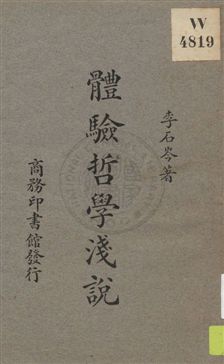 W
4819
李石岑著
體驗哲學淺說
商務印書館發行